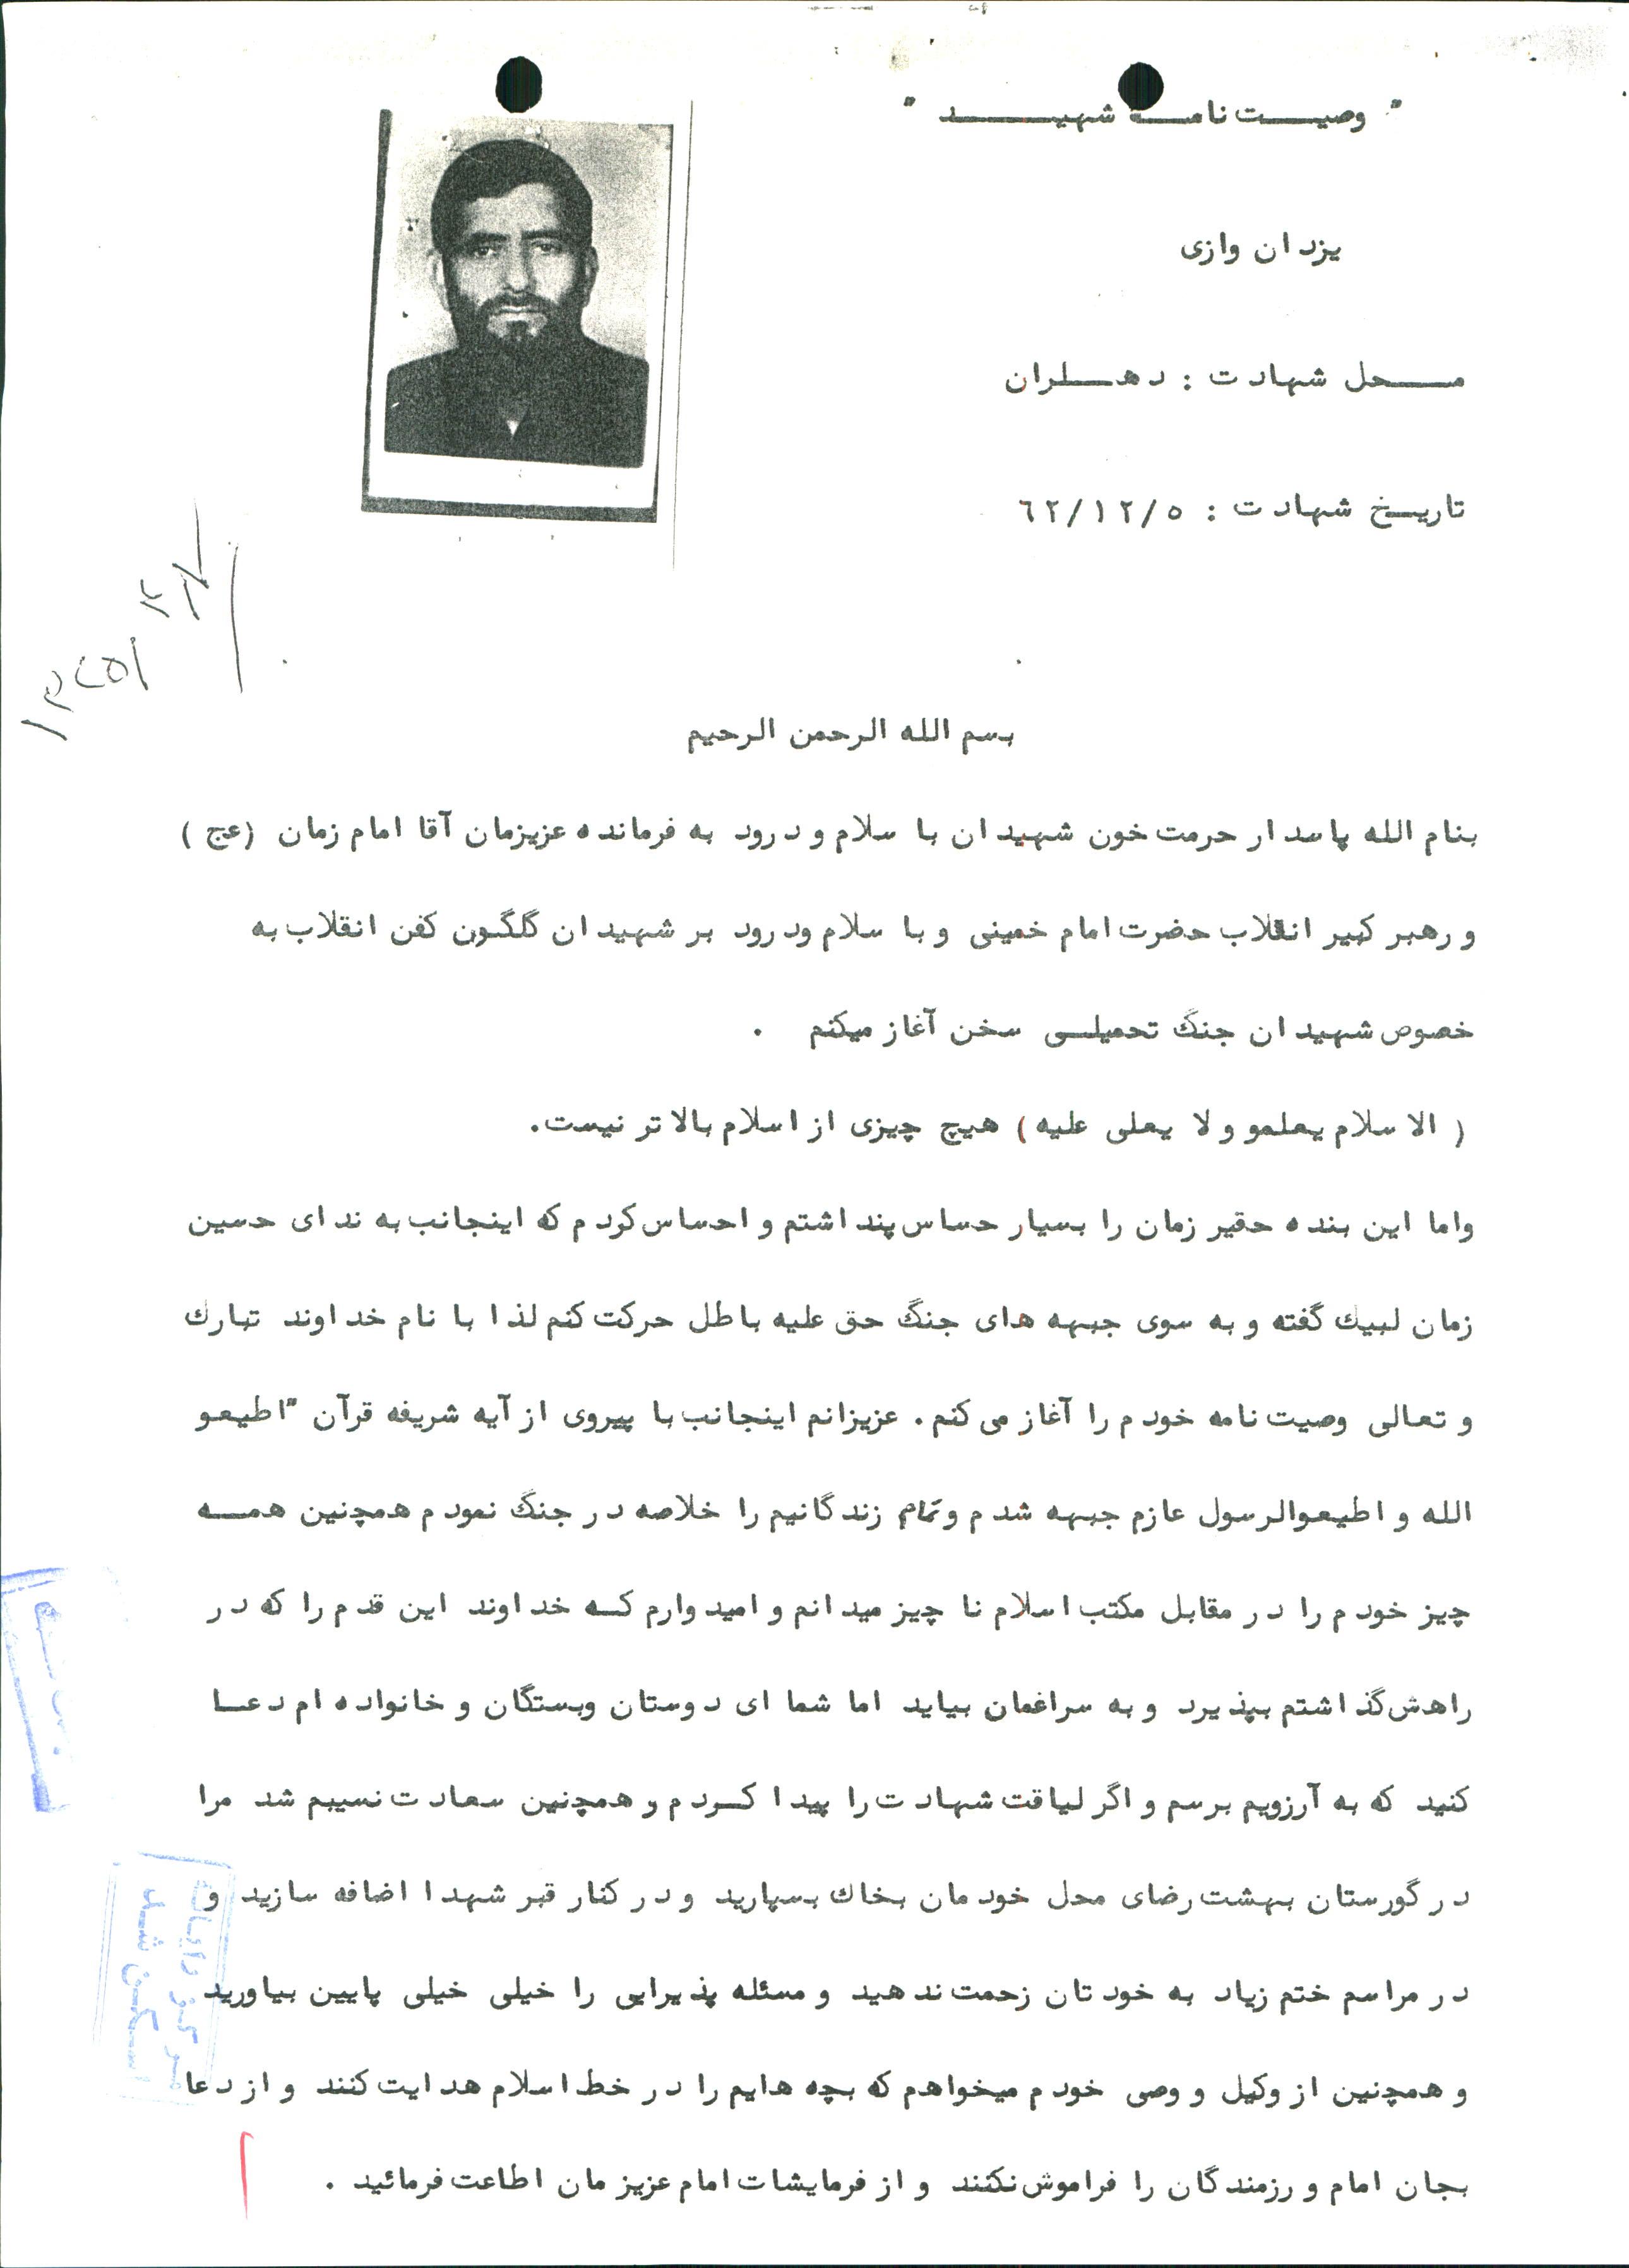 " وصیت نامه شهید "
یزدان وازی
محل شهادت : دهلران
تاریخ شهادت : ٦٢/١٢/٥
بسم الله الرحمن الرحیم
بنام الله پاسدار حرمت خون شهیدان با سلام و درود به فرمانده عزیزمان آقا امام زمان (عج )
و رهبر کبیر انقلاب حضرت امام خمینی و با سلام ودرود بر شهیدان گلگون کفن انقلاب به
خصوص شهیدان جنگ تحمیلی سخن آغاز میکنم .
( الاسلام یعلمو و لا یعلی علیه ) هیچ چیزی از اسلام بالاتر نیست.
واما این بنده حقیر زمان را بسیار حساس پنداشتم و احساس کردم که اینجانب به ندای حسین
زمان لبیك گفته و به سوی جبهه های جنگ حق علیه باطل حرکت کنم لذا با نام خداوند تبارك
و تعالی وصیت نامه خودم را آغاز می کنم . عزیزانم اینجانب با پیروی از آیه شریفه قرآن "اطیعو
الله و اطیعوالرسول عازم جبهه شدم و تمام زندگانیم را خلاصه در جنگ نمودم همچنین همه
چیز خودم را در مقابل مکتب اسلام نا چیز میدانم و امیدوارم که خداوند این قدم را که در
راهش گذاشتم بپذیرد و به سراغمان بیاید اما شما ای دوستان وبستگان و خانواده ام دعا
کنید که به آرزویم برسم و اگر لیاقت شهادت را پیدا کردم و همچنین سعادت نسیبم شد مرا
در گورستان بهشت رضای محل خودمان بخاك بسپارید و در کنار قبر شهدا اضافه سازید و
در مراسم ختم زیاد به خودتان زحمت ندهید و مسئله پذیرایی را خیلی خیلی پایین بیاورید
و همچنین از وکیل و وصی خودم میخواهم که بچه هایم را در خط اسلام هدایت کنند و از دعا
بجان امام و رزمندگان را فراموش نکنند و از فرمایشات امام عزیز مان اطاعت فرمائید .